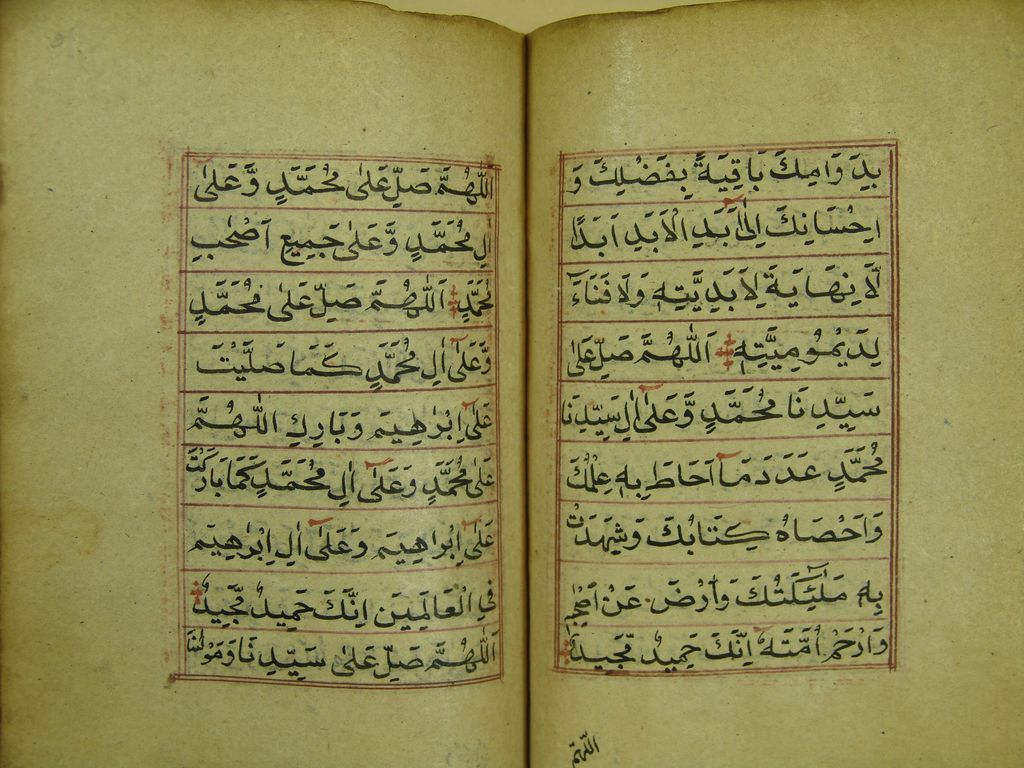 بِدَوَامِكَ بَاقِيَةً بِفَضْلِكَ وَ
اِحْسَانِكَ اِلٰٓى اَبَدِ الْاَبَدِ اَبَدًا
لَّا نِهَايَةَ لِاَبَدِيَّتِهٖ وَلَا فَنَآءَ
لِدَيْمُوْمِيَّتِهٖ اَللّٰهُمَّ صَلِّ عَلٰى
سَيِّدِنَا مُحَمَّدٍ وَّعَلٰٓى اٰلِ سَيِّدِنَا
مُحَمَّدٍ عَدَدَ مَآ اَحَاطَ بِهٖ عِلْمُكَ
وَاَحْصَاهُ كِتَابُكَ وَشَهِدَتْ
بِهٖ مَلٰٓئِكَتُكَ وَارْضَ عَنْ اَصْحٰبِهٖ
وَارْحَمْ اُمَّتَهٗٓ اِنَّكَ حَمِيْدٌ مَّجِيْدٌ
اللّهمّ
اَللّٰهُمَّ صَلِّ عَلٰى مُحَمَّدٍ وَّعَلٰٓى
اٰلِ مُحَمَّدٍ وَّعَلٰى جَمِيْعِ اَصْحٰبِ
مُحَمَّدٍ اَللّٰهُمَّ صَلِّ عَلٰى مُحَمَّدٍ
وَّعَلٰٓى اٰلِ مُحَمَّدٍ كَمَا صَلَّيْتَ
عَلٰٓى اِبْرٰهِيْمَ وَبَارِكِ اللّٰهُمَّ
عَلٰى مُحَمَّدٍ وَعَلٰٓى اٰلِ مُحَمَّدٍ كَمَا بَارَكْتَ
عَلٰٓى اِبْرَاهِيْمَ وَعَلٰٓى اٰلِ اِبْرٰهِيْمَ
فِي الْعَالَمِيْنَ اِنَّكَ حَمِيْدٌ مَّجِيْدٌ
اَللّٰهُمَّ صَلِّ عَلٰى سَيِّدِنَا وَمَوْلٰنَا